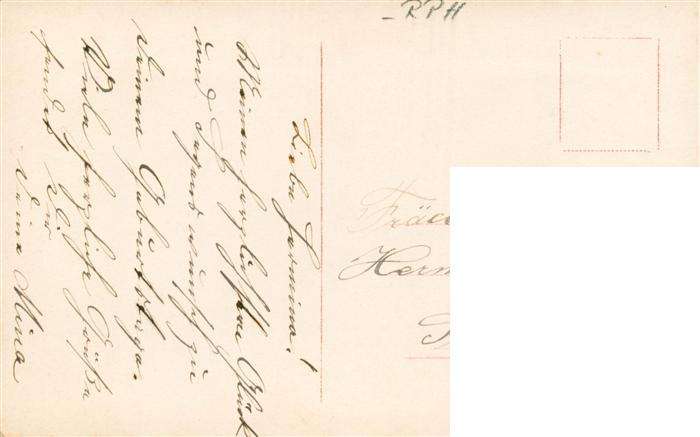 Liebe Hermine!
Meinen herzlichsten Glück
und Segenswunsch zu
Deinem Geburtstage.
Viele herzliche Grüße
sendet Dir
Deine Mina
RPH
Fräu
Herm